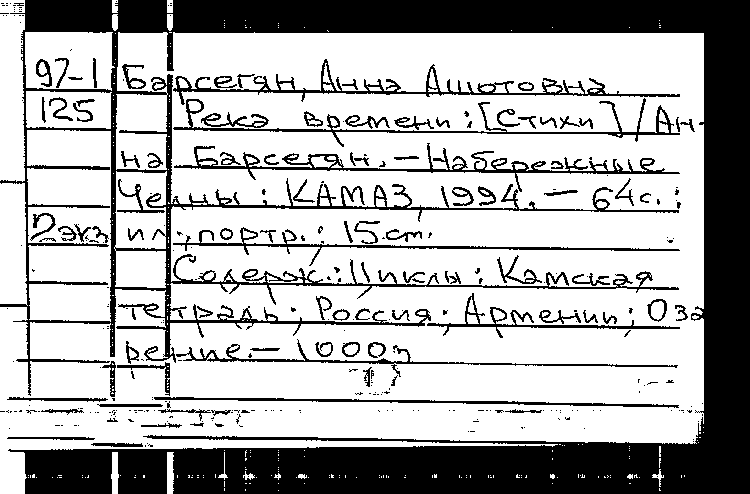 97-1 Барсегян, Анна Ашотовна.
125 Река времени : [Стихи] / Ан-
на Барсегян. – Набережные
Челны : КАМАЗ, 1994. – 64 с. :
2 экз ил., портр. ; 15 см.
Содерж.: Циклы : Камская
тетрадь ; Россия ; Армении ; Оза
рение. – 1000 э